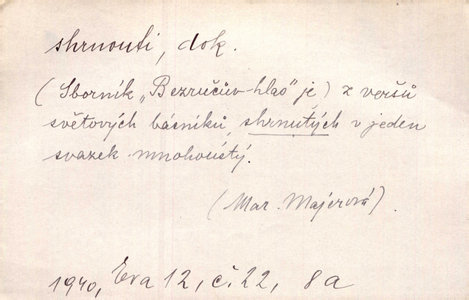 shrnouti, dok.
(Sborník „Bezručův hlas" je) z veršů
světových básníků, shrnutých v jeden
svazek mnohoústý.
(Mar. Majerová).
1940, Eva 12, č. 22, 8a